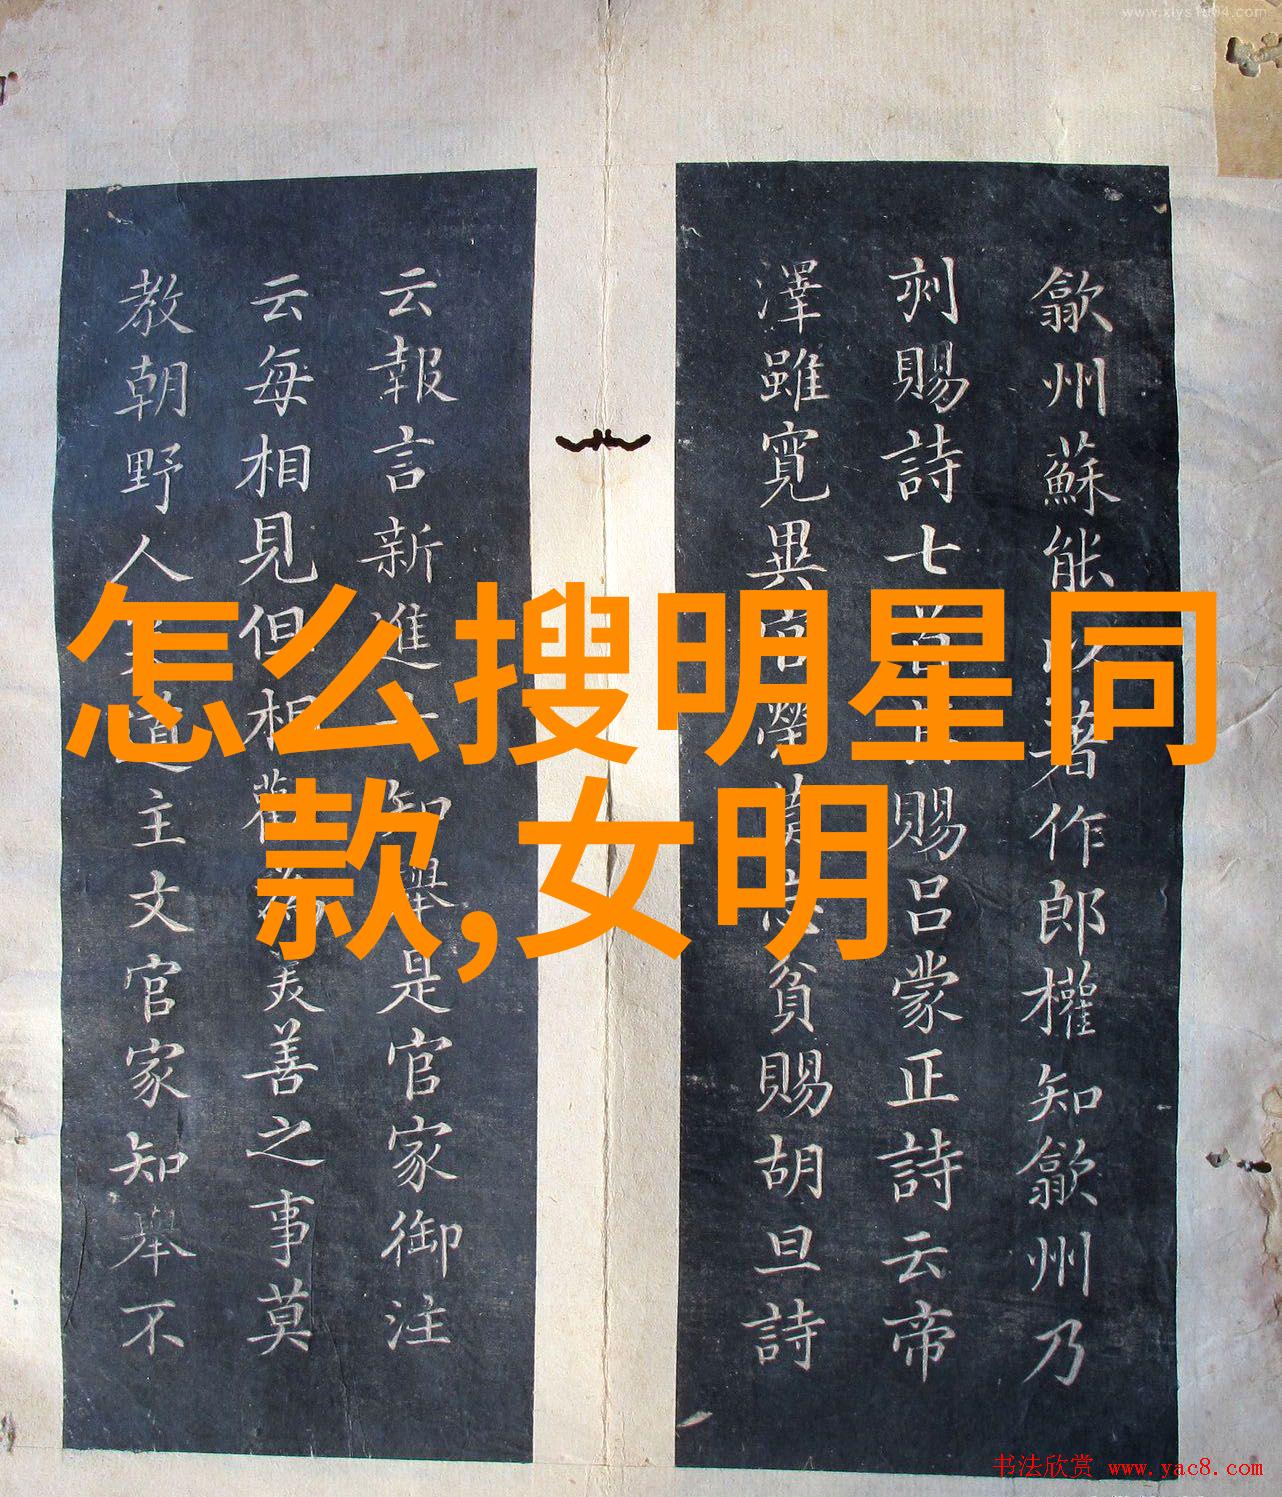 www.xlys1904.com
歙州蘇能以著作郎權知歙州乃
刻賜詩七首賜呂蒙正詩云帝
澤雖寬異榮莫忘貧賜胡旦詩
云報言新進士知舉是官家御注
云每相見但相勸為美善之事莫
教朝野人道主文官家知舉不
怎么搜明星同
款,女明
书法欣赏 www.yac8.com